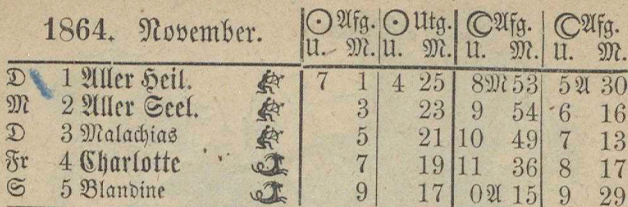 1864. November. ☉ Afg. ☉ Utg. ☾ Afg. ☾ Afg.
U. M. U. M. U. M. U. M.
D 1 Aller Heil. 7 1 4 25 8 M 53 5 A 30
M 2 Aller Seel. 3 23 9 54 6 16
D 3 Malachias 5 21 10 49 7 13
Fr 4 Charlotte 7 19 11 36 8 17
S 5 Blandine 9 17 0 A 15 9 29